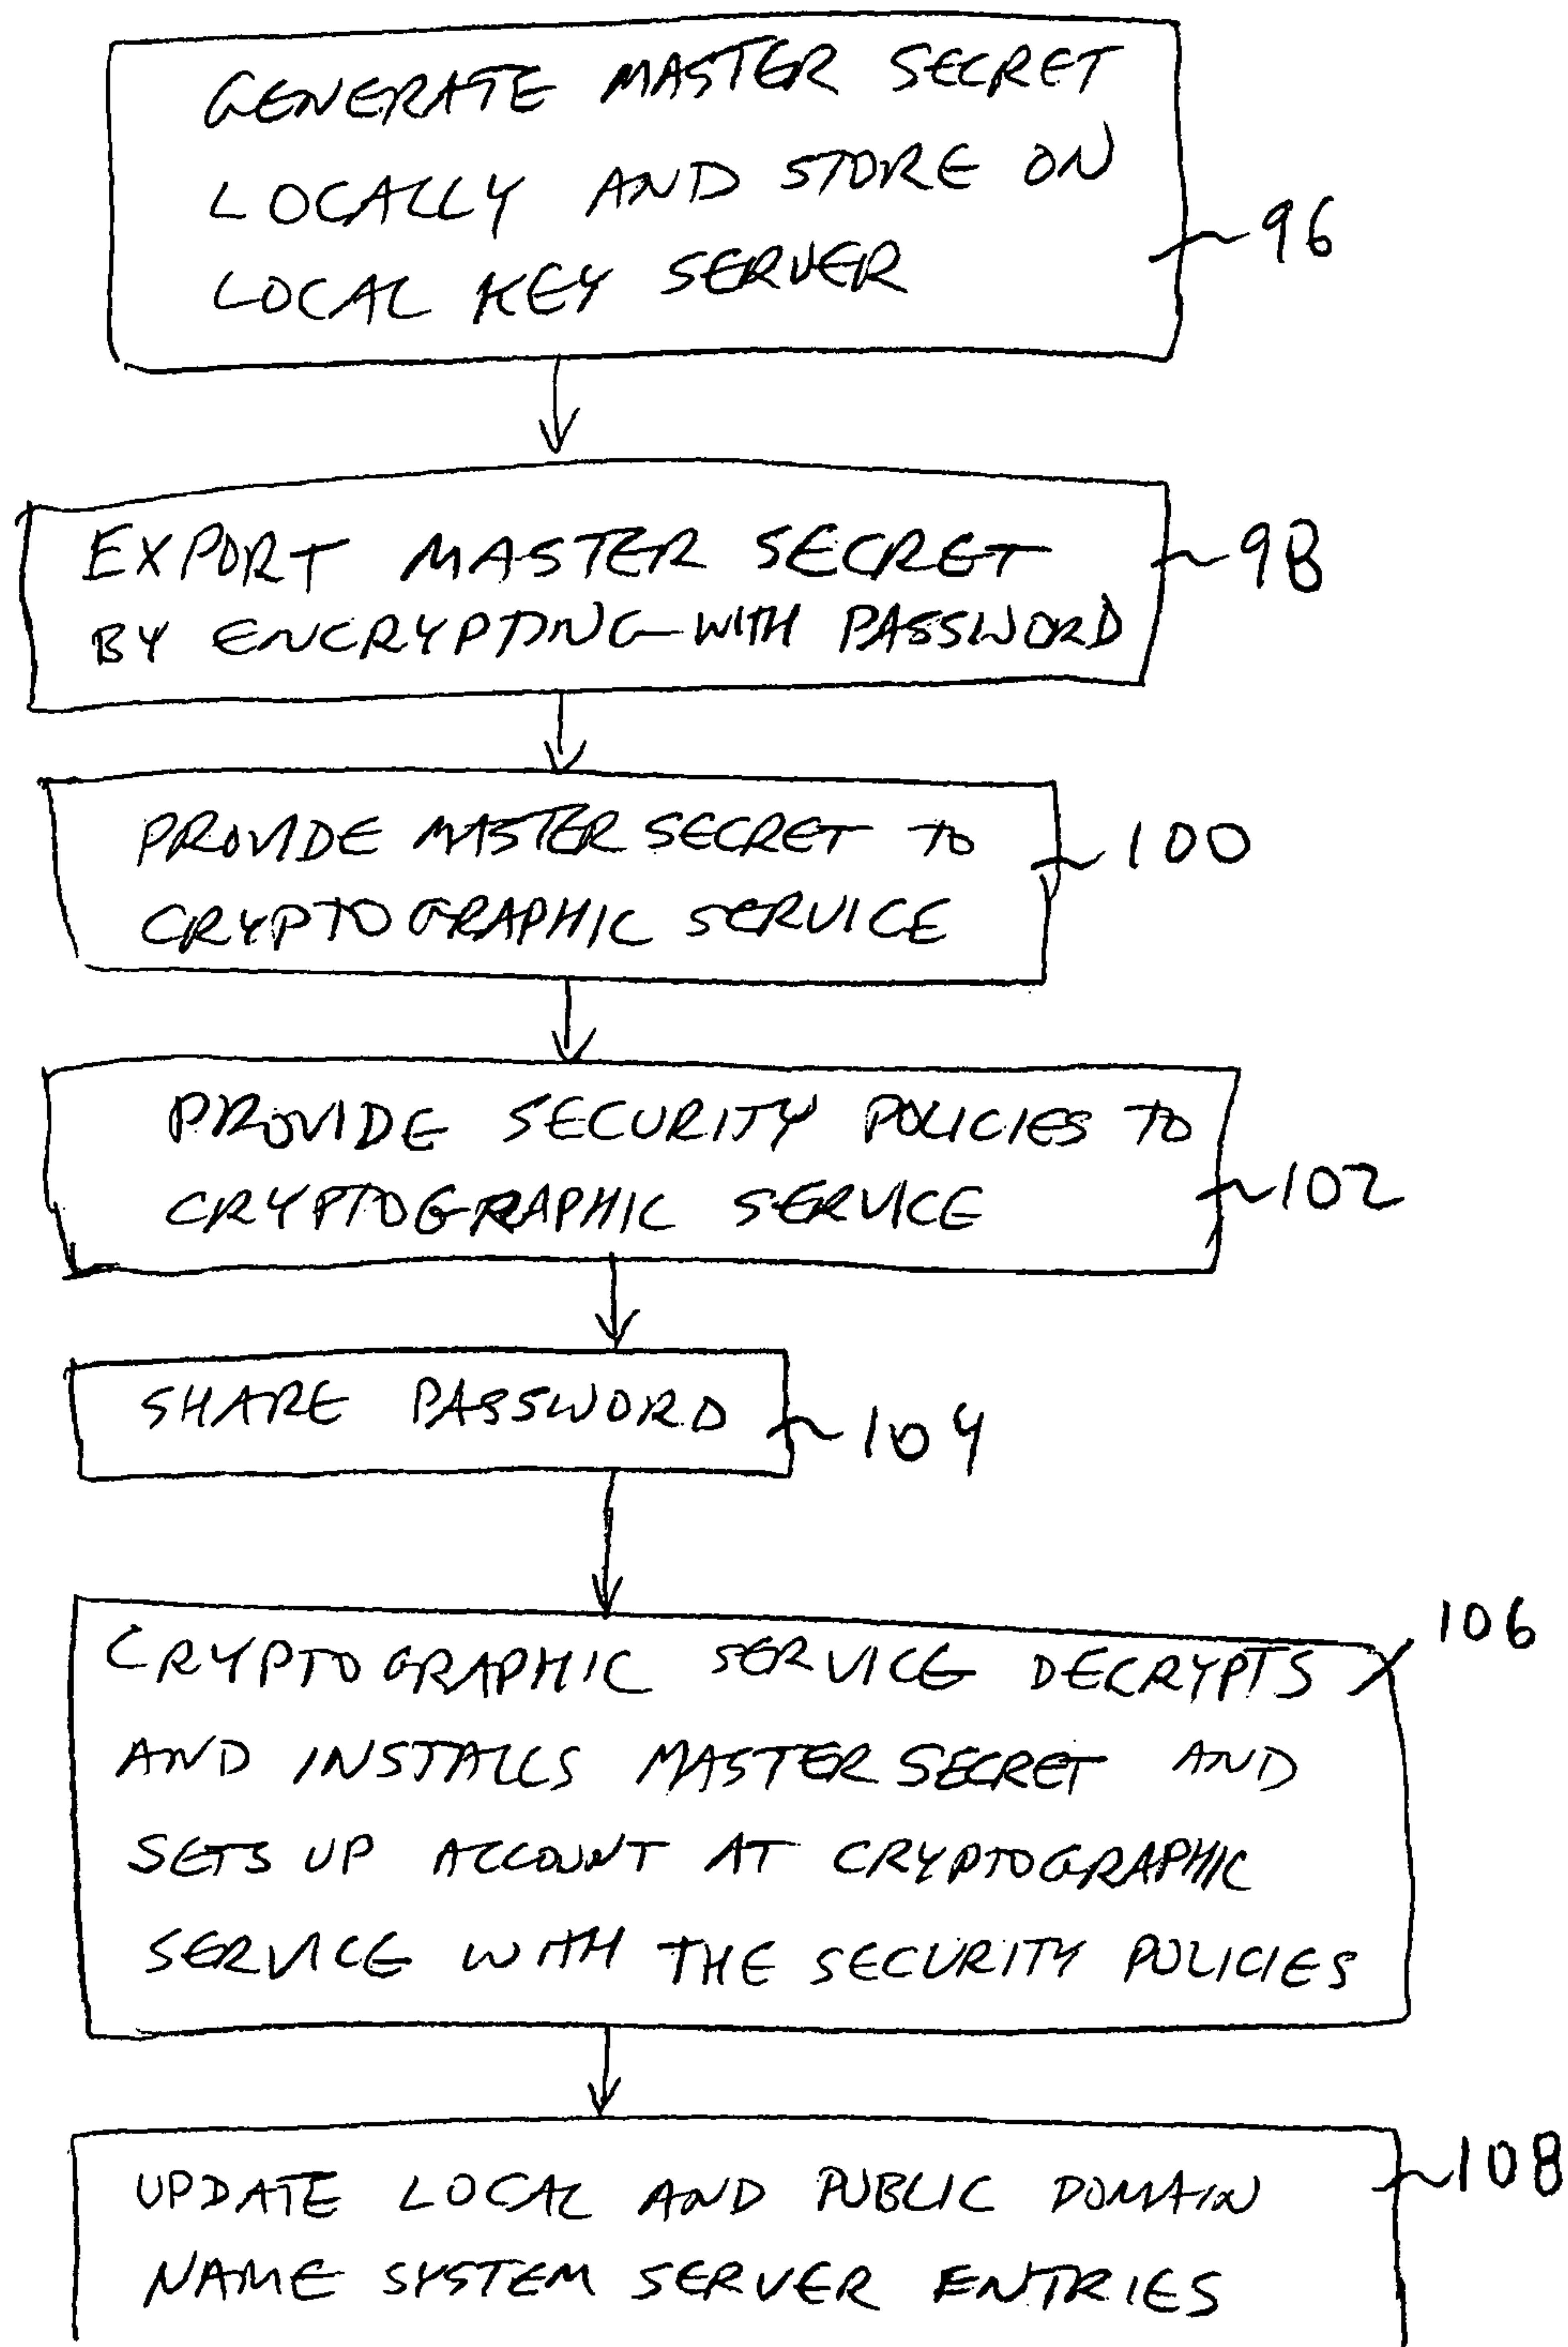 GENERATE MASTER SECRET
LOCALLY AND STORE ON
LOCAL KEY SERVER
96
EXPORT MASTER SECRET
BY ENCRYPTING WITH PASSWORD
98
PROVIDE MASTER SECRET TO
CRYPTOGRAPHIC SERVICE
100
PROVIDE SECURITY POLICIES TO
CRYPTOGRAPHIC SERVICE
102
SHARE PASSWORD
104
106
CRYPTOGRAPHIC SERVICE DECRYPTS
AND INSTALLS MASTER SECRET AND
SETS UP ACCOUNT AT CRYPTOGRAPHIC
SERVICE WITH THE SECURITY POLICIES
108
UPDATE LOCAL AND PUBLIC DOMAIN
NAME SYSTEM SERVER ENTRIES